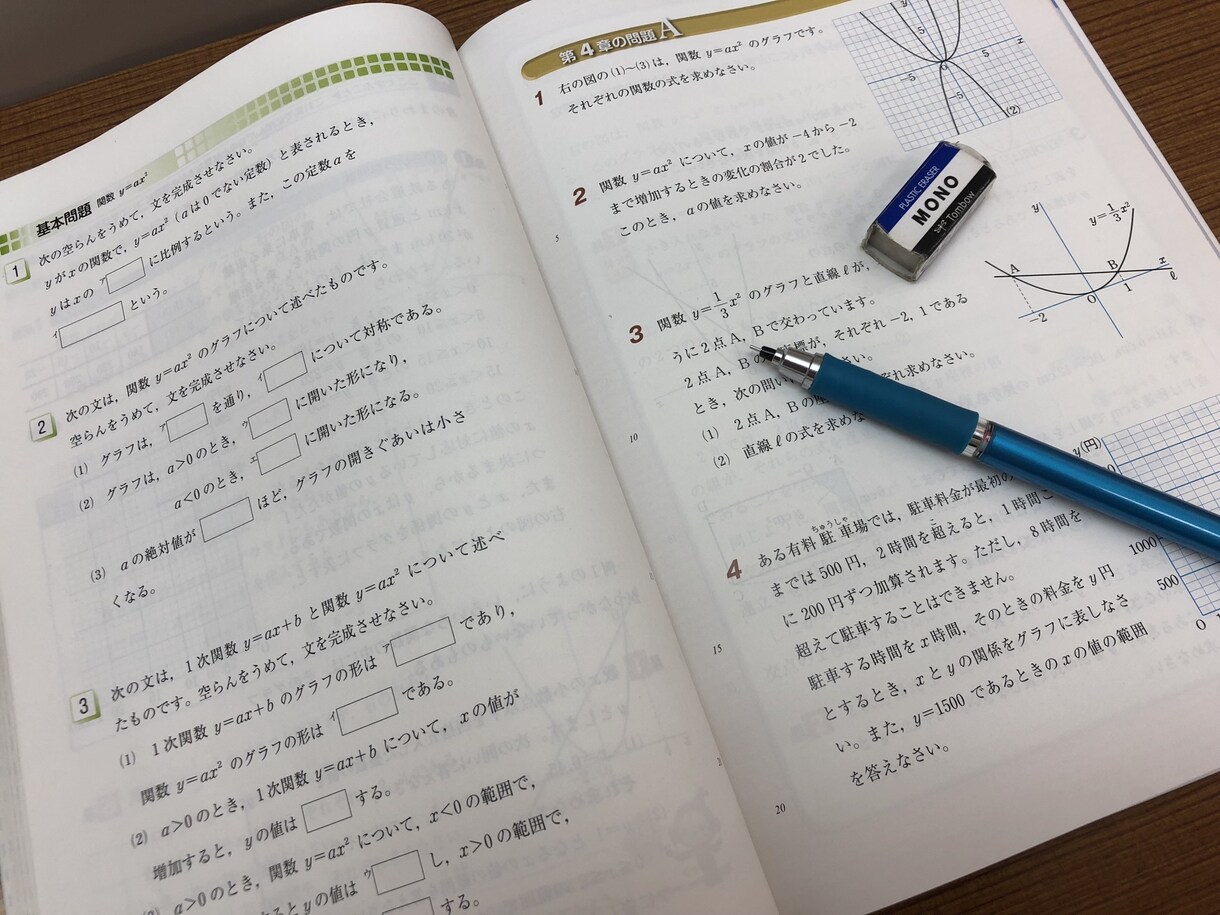 基本問題 関数 y=ax²
1 次の空らんをうめて，文を完成させなさい。
yがxの関数で，y=ax²（aは0でない定数）と表されるとき，
yはxの ア に比例するという。また，この定数aを
イ という。
2 次の文は，関数 y=ax² のグラフについて述べたものです。
空らんをうめて，文を完成させなさい。
(1) グラフは， ア を通り， イ について対称である。
(2) グラフは，a>0のとき， ウ に開いた形になり，
a<0のとき， エ に開いた形になる。
(3) aの絶対値が ほど，グラフの開きぐあいは小さ
くなる。
3 次の文は，1次関数 y=ax+b と関数 y=ax² について述べ
たものです。空らんをうめて，文を完成させなさい。
(1) 1次関数 y=ax+b のグラフの形は ア であり，
関数 y=ax² のグラフの形は イ である。
(2) a>0のとき，1次関数 y=ax+b について，xの値が
増加すると，yの値は する。
a>0のとき，関数 y=ax² について，x<0の範囲で，
するとyの値は ウ し，x>0の範囲で，
する。
第4章の問題A
1 右の図の(1)〜(3)は，関数 y=ax² のグラフです。
それぞれの関数の式を求めなさい。
y
5
-5
5
x
-5
(2)
2 関数 y=ax² について，xの値が −4から −2
まで増加するときの変化の割合が2でした。
このとき，aの値を求めなさい。
5
PLASTIC ERASER
MONO
Tombow
3 関数 y=1/3x² のグラフと直線ℓが，
うに2点A，Bで交わっています。
2点A，Bの 座標が，それぞれ −2，1である
とき，次の問い さい。
(1) 2点A，Bの座 ぞれ求めなさい。
(2) 直線ℓの式を求めな
10
y
y=1/3x²
A
B
x
ℓ
−2
0
1
4 ある有料駐車場では，駐車料金が最初の
ちゅうしゃ
までは500円，2時間を超えると，1時間ご
こ
に200円ずつ加算されます。ただし，8時間を
超えて駐車することはできません。
駐車する時間をx時間，そのときの料金をy円
とするとき，xとyの関係をグラフに表しなさ
い。また，y=1500であるときのxの値の範囲
を答えなさい。
15
20
y(円)
1000
500
0